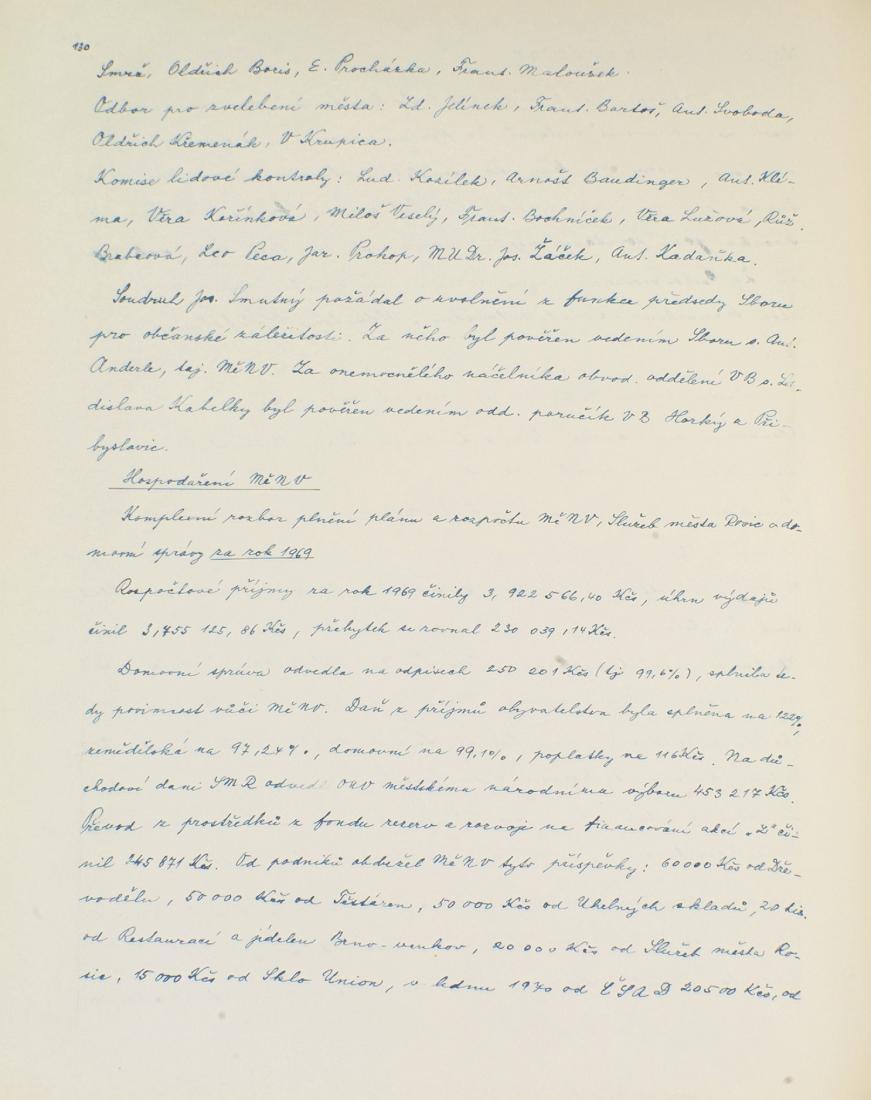 130
Smrž, Oldřich Boris, E. Procházka, Frant. Matoušek.
Odbor pro zvelebení města: Zd. Jelínek, Frant. Bartoš, Ant. Svoboda,
Oldřich Křemenák, V Krupica.
Komise lidové kontroly: Lud. Kozílek, Arnošt Baudinger, Ant. Klí-
ma, Věra Kořínková, Miloš Veselý, Frant. Bochníček, Věra Lužová, Růž.
Brabcová, Leo Peca, Jar. Prokop, MUDr. Jos. Žáček, Ant. Kadaňka.
Soudruh Jos. Smutný požádal o zvolnění z funkce předsedy Sboru
pro občanské záležitosti. Za něho byl pověřen vedením Sboru s. Ant.
Anderle, taj. MěNV. Za onemocnělého náčelníka obvod. oddělení VB s. La-
dislava Kabelky byl pověřen vedením odd. poručík VB Horký z Při-
byslavic.
Hospodaření MěNV
Komplexní rozbor plnění plánu a rozpočtu MěNV, Služeb města Rosic a do-
movní správy za rok 1969
Rozpočtové příjmy za rok 1969 činily 3, 922 566,40 Kčs, úhrn výdajů
činil 3,755 125, 86 Kčs, přebytek se rovnal 230 039,14 Kčs.
Domovní správa odvedla na odpisech 250 201 Kčs (tj 99,6%), splnila te-
dy povinnost vůči MěNV. Daň z příjmů obyvatelstva byla splněna na 122%,
zemědělská na 97,24%, domovní na 99,1%, poplatky na 116 Kčs. Na dů-
chodové dani SMR odvedl ONV městskému národnímu výboru 453 217 Kčs.
Převod z prostředků z fondu rezerv a rozvoje na financování akcí „Z“ či-
nil 245 871 Kčs. Od podniků obdržel MěNV tyto příspěvky: 60 000 Kčs od Dře-
vodělu, 50 000 Kčs od Těstáren, 50 000 Kčs od Uhelných skladů, 20 tis.
od Restaurací a jídelen Brno-venkov, 20 000 Kčs od Služeb města Ro-
sic, 15 000 Kčs od Sklo Union, v lednu 1970 od ČSAD 20 500 Kčs, od